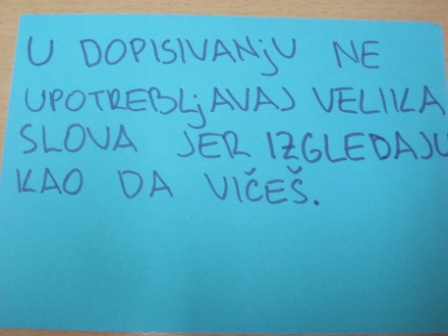 U DOPISIVANjU NE
UPOTREBLjAVAJ VELIKA
SLOVA JER IZGLEDAJU
KAO DA VIČEŠ.